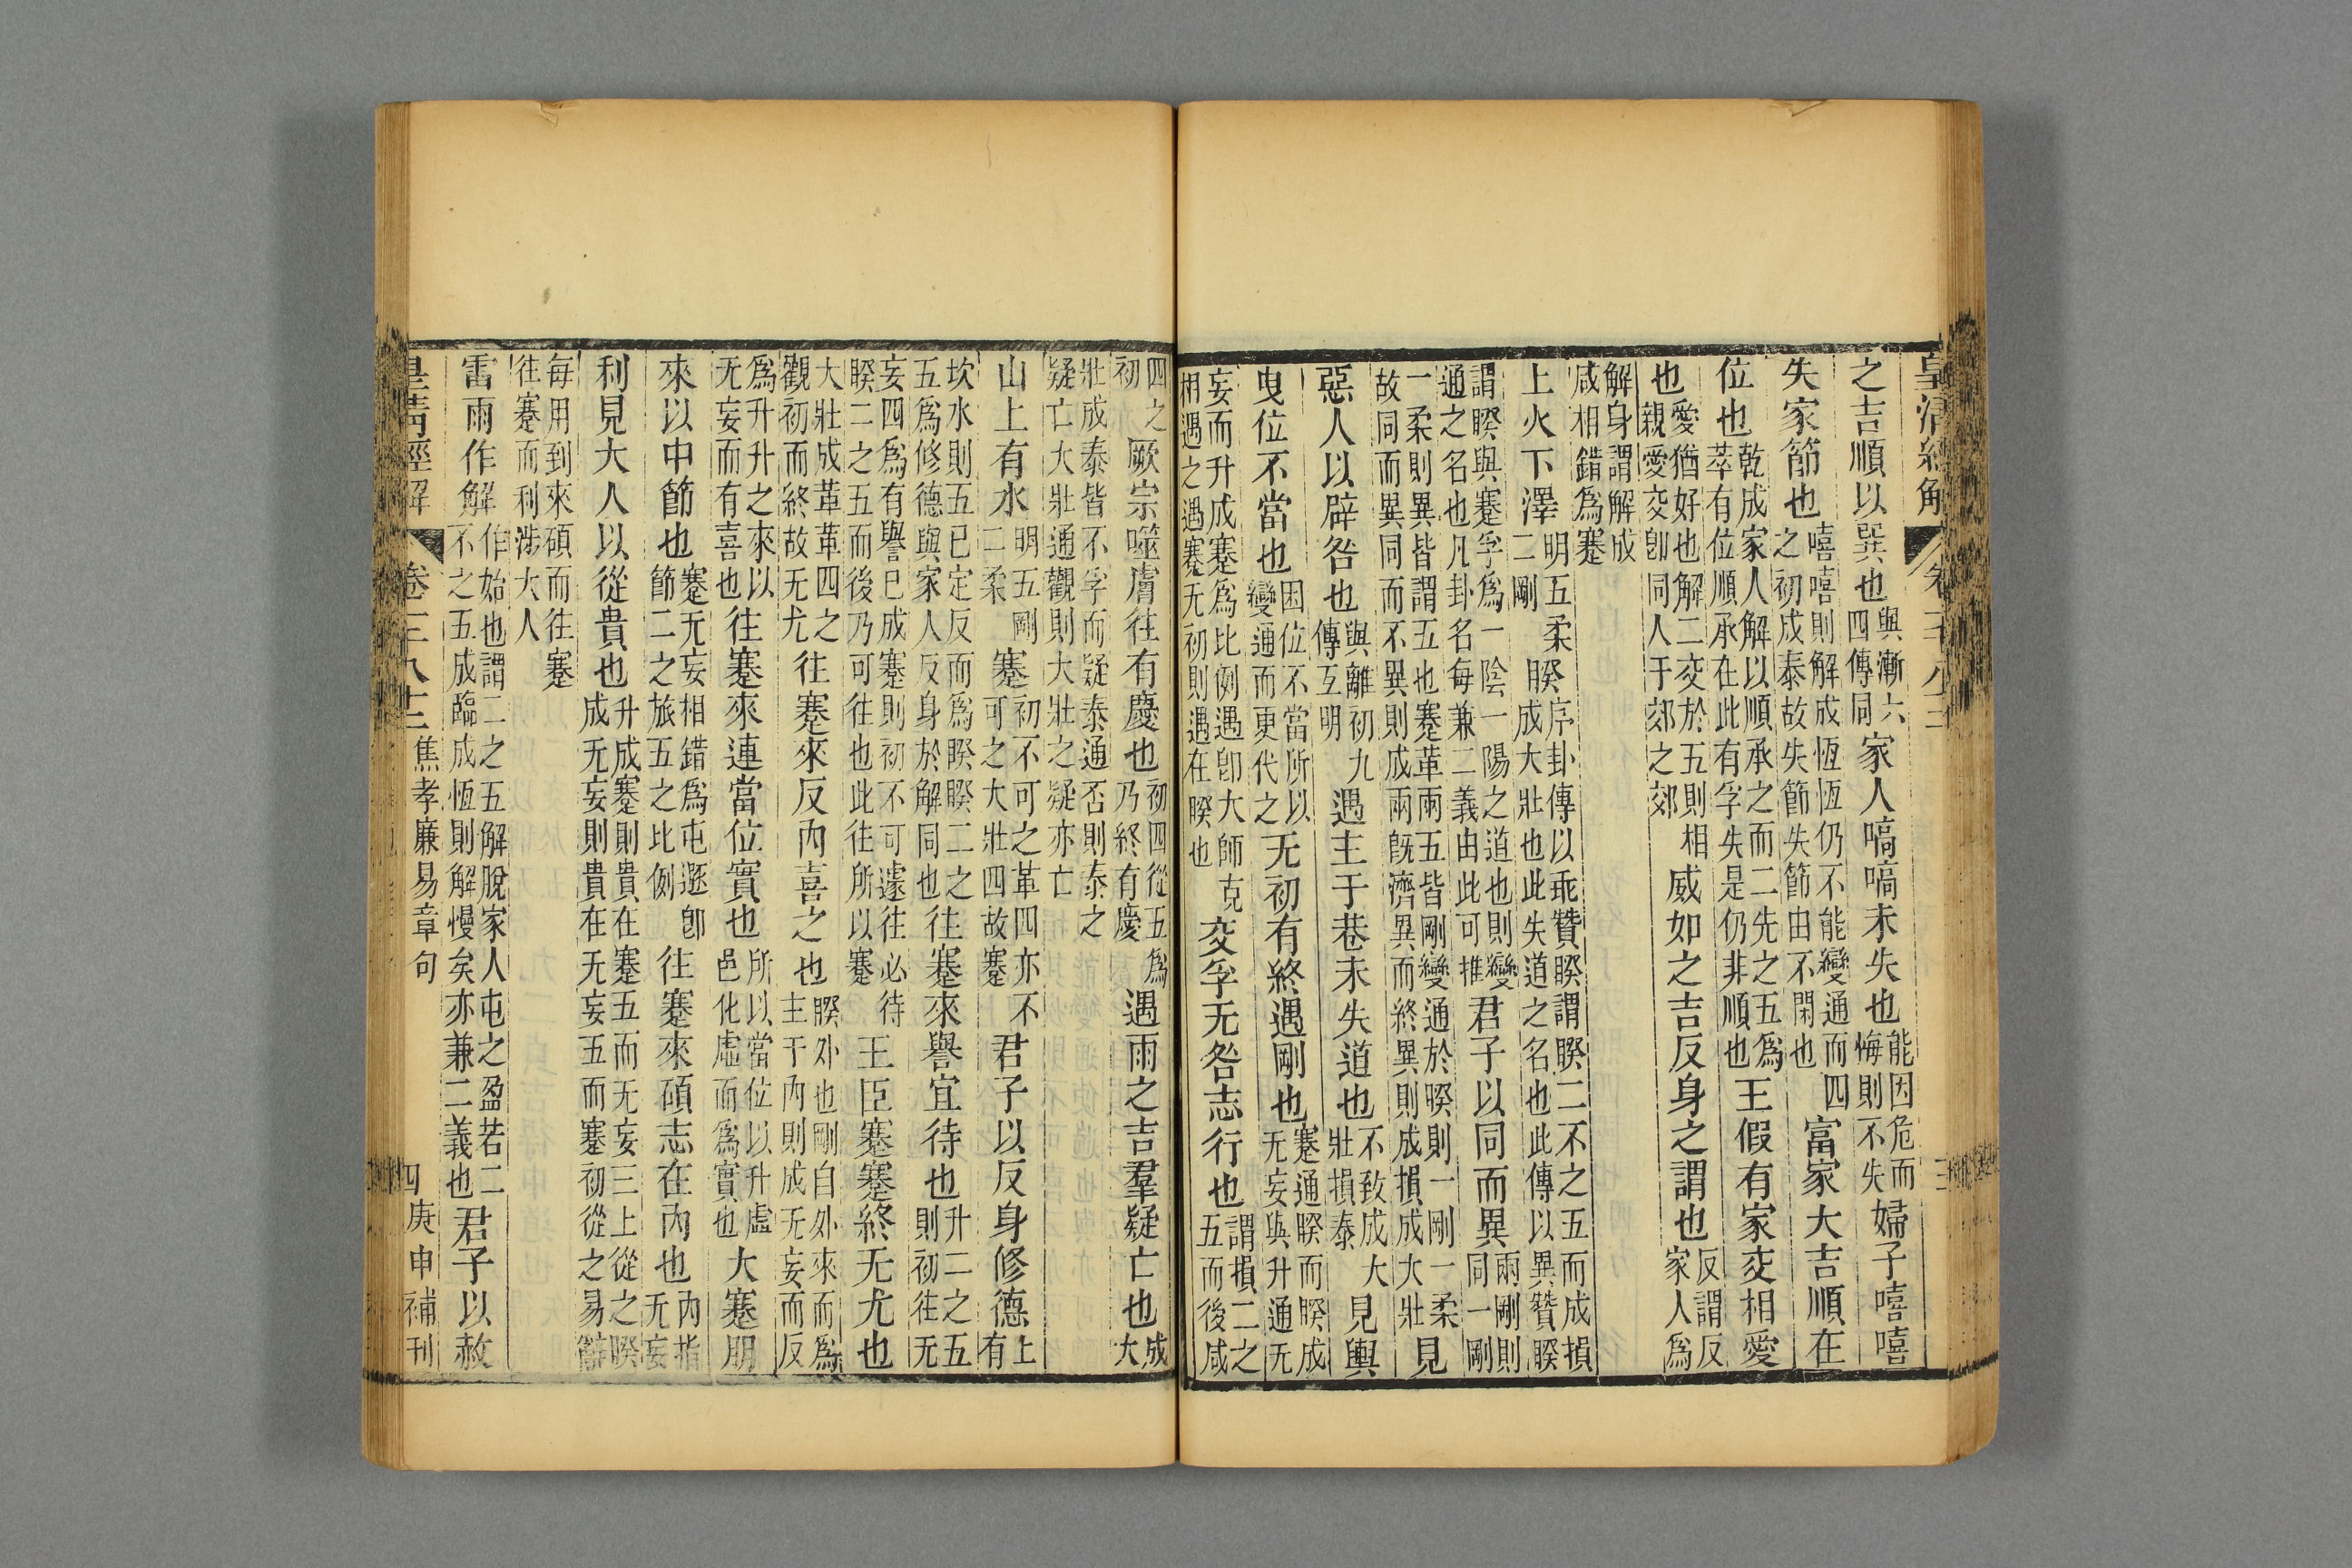 皇清經解
之吉順以巽也與漸六四傳同家人嗃嗃未失也能因危而悔則不失婦子嘻嘻
失家節也嘻嘻則解成恆恆仍不能變通而四之初成泰故失節失節由不閑也富家大吉順在
位也乾成家人解以順承之而二先之五爲萃有位順承在此有孚失是仍非順也王假有家交相愛
也愛猶好也解二交於五則相親愛交卽同人于郊之郊威如之吉反身之謂也反謂反家人爲
解身謂解成咸相錯爲蹇
上火下澤明五柔二剛睽序卦傳以乖贊睽謂睽二不之五而成損成大壯也此失道之名也此傳以異贊睽
謂睽與蹇孚爲一陰一陽之道也則變通之名也凡卦名每兼二義由此可推君子以同而異兩剛則同一剛
一柔則異皆謂五也蹇革兩五皆剛變通於睽則一剛一柔故同而異同而不異則成兩旣濟異而終異則成損成大壯見
惡人以辟咎也與離初九傳互明遇主于巷未失道也不致成大壯損泰見輿
曳位不當也因位不當所以變通而更代之无初有終遇剛也蹇通睽而睽成无妄與升通无
妄而升成蹇爲比例遇卽大師克相遇之遇蹇无初則遇在睽也交孚无咎志行也謂損二之五而後咸
四之初厥宗噬膚往有慶也初四從五爲乃終有慶遇雨之吉羣疑亡也成大
壯成泰皆不孚而疑泰通否則泰之疑亡大壯通觀則大壯之疑亦亡
山上有水明五剛二柔蹇初不可之革四亦不可之大壯四故蹇君子以反身修德上有
坎水則五已定反而爲睽睽二之五爲修德與家人反身於解同也往蹇來譽宜待也升二之五則初往无
妄四爲有譽已成蹇則初不可遽往必待睽二之五而後乃可往也此往所以蹇王臣蹇蹇終无尤也
大壯成革革四之觀初而終故无尤往蹇來反內喜之也睽外也剛自外來而爲主于內則成无妄而反
爲升升之來以无妄而有喜也往蹇來連當位實也所以當位以升虛邑化虛而爲實也大蹇朋
來以中節也蹇无妄相錯爲屯遯卽節二之旅五之比例往蹇來碩志在內也內指无妄
利見大人以從貴也升成蹇則貴在蹇五而无妄三上從之睽成无妄則貴在无妄五而蹇初從之易辭
每用到來碩而往蹇往蹇而利涉大人
雷雨作解作始也謂二之五解脫家人屯之盈若二不之五成臨成恆則解慢矣亦兼二義也君子以赦
皇清經解 焦孝廉易章句 四 庚申補刊